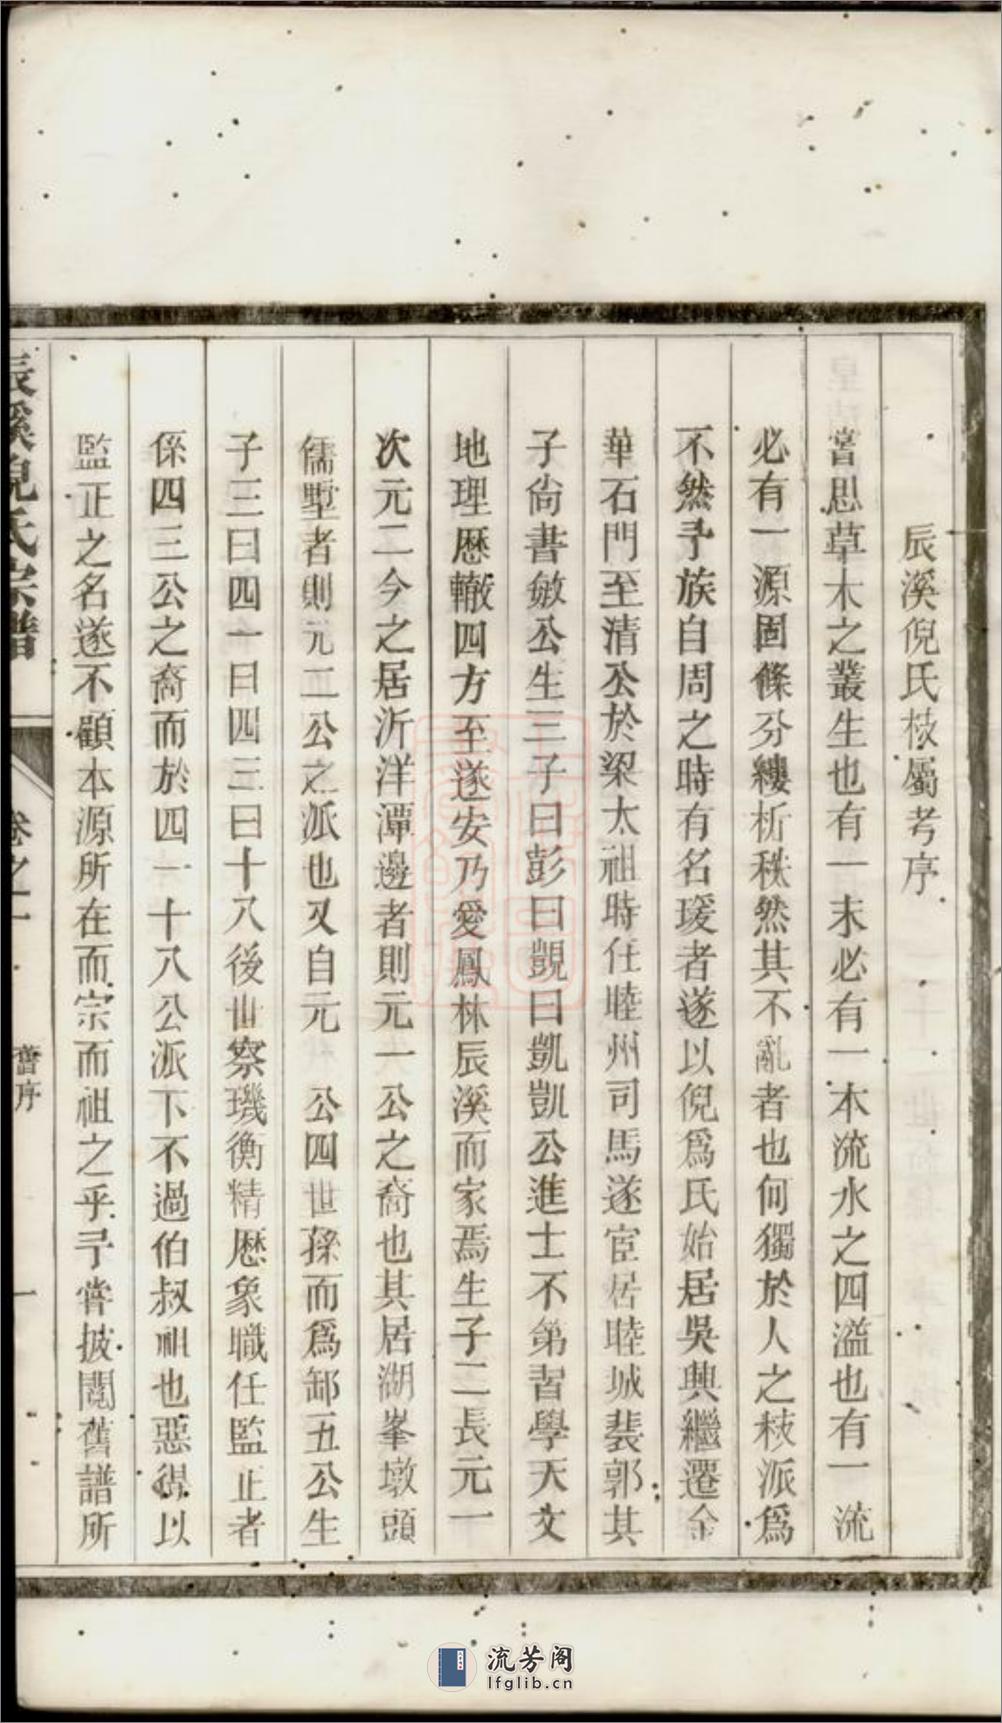 辰溪倪氏枝屬考序
嘗思草木之叢生也有一末必有一本流水之四溢也有一流
必有一源固條分縷析秩然其不亂者也何獨於人之枝派爲
不然予族自周之時有名瑗者遂以倪爲氏始居吳興繼遷金
華石門至清公於梁太祖時任睦州司馬遂宦居睦城裴郭其
子尙書敏公生三子曰彭曰覬曰凱凱公進士不第習學天文
地理歷轍四方至遂安乃愛鳳林辰溪而家焉生子二長元一
次元二今之居沂洋潭邊者則元一公之裔也其居湖峯墩頭
儒墅者則元二公之派也又自元 公四世孫而爲卸五公生
子三曰四一曰四三曰十八後世察璣衡精歷象職任監正者
係四三公之裔而於四一十八公派下不過伯叔祖也惡得以
監正之名遂不顧本源所在而宗而祖之乎予嘗披閱舊譜所
辰溪倪氏宗譜
卷之一
舊序
一
流芳阁
lfglib.cn